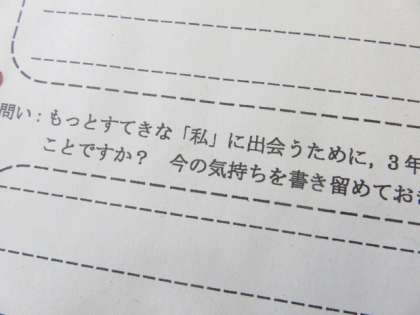 問い：もっとすてきな「私」に出会うために，３年
ことですか？　今の気持ちを書き留めてお